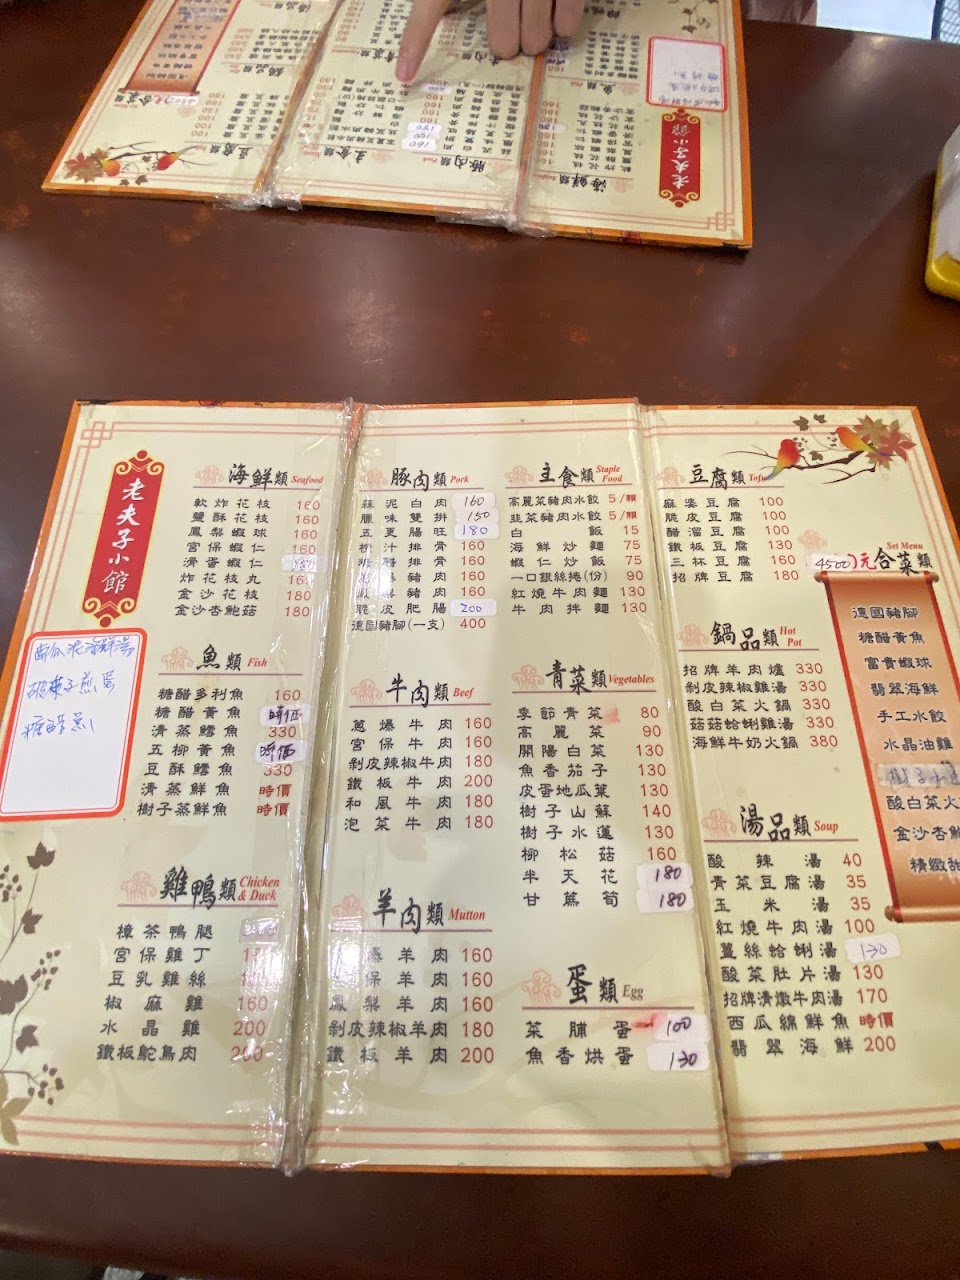 老夫子小館
海鮮類 Seafood
軟炸花枝 160
鹽酥花枝 160
鳳梨蝦球 160
宮保蝦仁 160
滑蛋蝦仁
炸花枝丸 160
金沙花枝 180
金沙杏鮑菇 180
魚類 Fish
糖醋多利魚 160
糖醋黃魚 時価
清蒸鱈魚 330
五柳黃魚 時価
豆酥鱈魚 330
清蒸鮮魚 時價
樹子蒸鮮魚 時價
雞鴨類 Chicken & Duck
樟茶鴨腿
宮保雞丁
豆乳雞絲
椒麻雞 160
水晶雞 200
鐵板鴕鳥肉 200
豚肉類 Pork
蒜泥白肉 160
臘味雙拼 150
五更腸旺 180
橙汁排骨 160
糖醋排骨 160
豬肉 160
鳳梨豬肉 160
脆皮肥腸 200
德國豬腳(一支) 400
牛肉類 Beef
蔥爆牛肉 160
宮保牛肉 160
剝皮辣椒牛肉 180
鐵板牛肉 200
和風牛肉 180
泡菜牛肉 180
羊肉類 Mutton
爆羊肉 160
保羊肉 160
鳳梨羊肉 160
剝皮辣椒羊肉 180
鐵板羊肉 200
主食類 Staple Food
高麗菜豬肉水餃 5/顆
韭菜豬肉水餃 5/顆
白飯 15
海鮮炒麵 75
蝦仁炒飯 75
一口銀絲捲(份) 90
紅燒牛肉麵 130
牛肉拌麵 130
青菜類 Vegetables
季節青菜 80
高麗菜 90
開陽白菜 130
魚香茄子 130
皮蛋地瓜葉 130
樹子山蘇 140
樹子水蓮 130
柳松菇 160
半天花 180
甘蔗筍 180
蛋類 Egg
菜脯蛋 100
魚香烘蛋 130
豆腐類 Tofu
麻婆豆腐 100
脆皮豆腐 100
醋溜豆腐 100
鐵板豆腐 130
三杯豆腐 160
招牌豆腐 180
鍋品類 Hot Pot
招牌羊肉爐 330
剝皮辣椒雞湯 330
酸白菜火鍋 330
菇菇蛤蜊雞湯 330
海鮮牛奶火鍋 380
湯品類 Soup
酸辣湯 40
青菜豆腐湯 35
玉米湯 35
紅燒牛肉湯 100
薑絲蛤蜊湯 130
酸菜肚片湯 130
招牌清燉牛肉湯 170
西瓜綿鮮魚 時價
翡翠海鮮 200
Set Menu
4500元合菜類
德國豬腳
糖醋黃魚
富貴蝦球
翡翠海鮮
手工水餃
水晶油雞
酸白菜火
金沙杏鮑
精緻甜